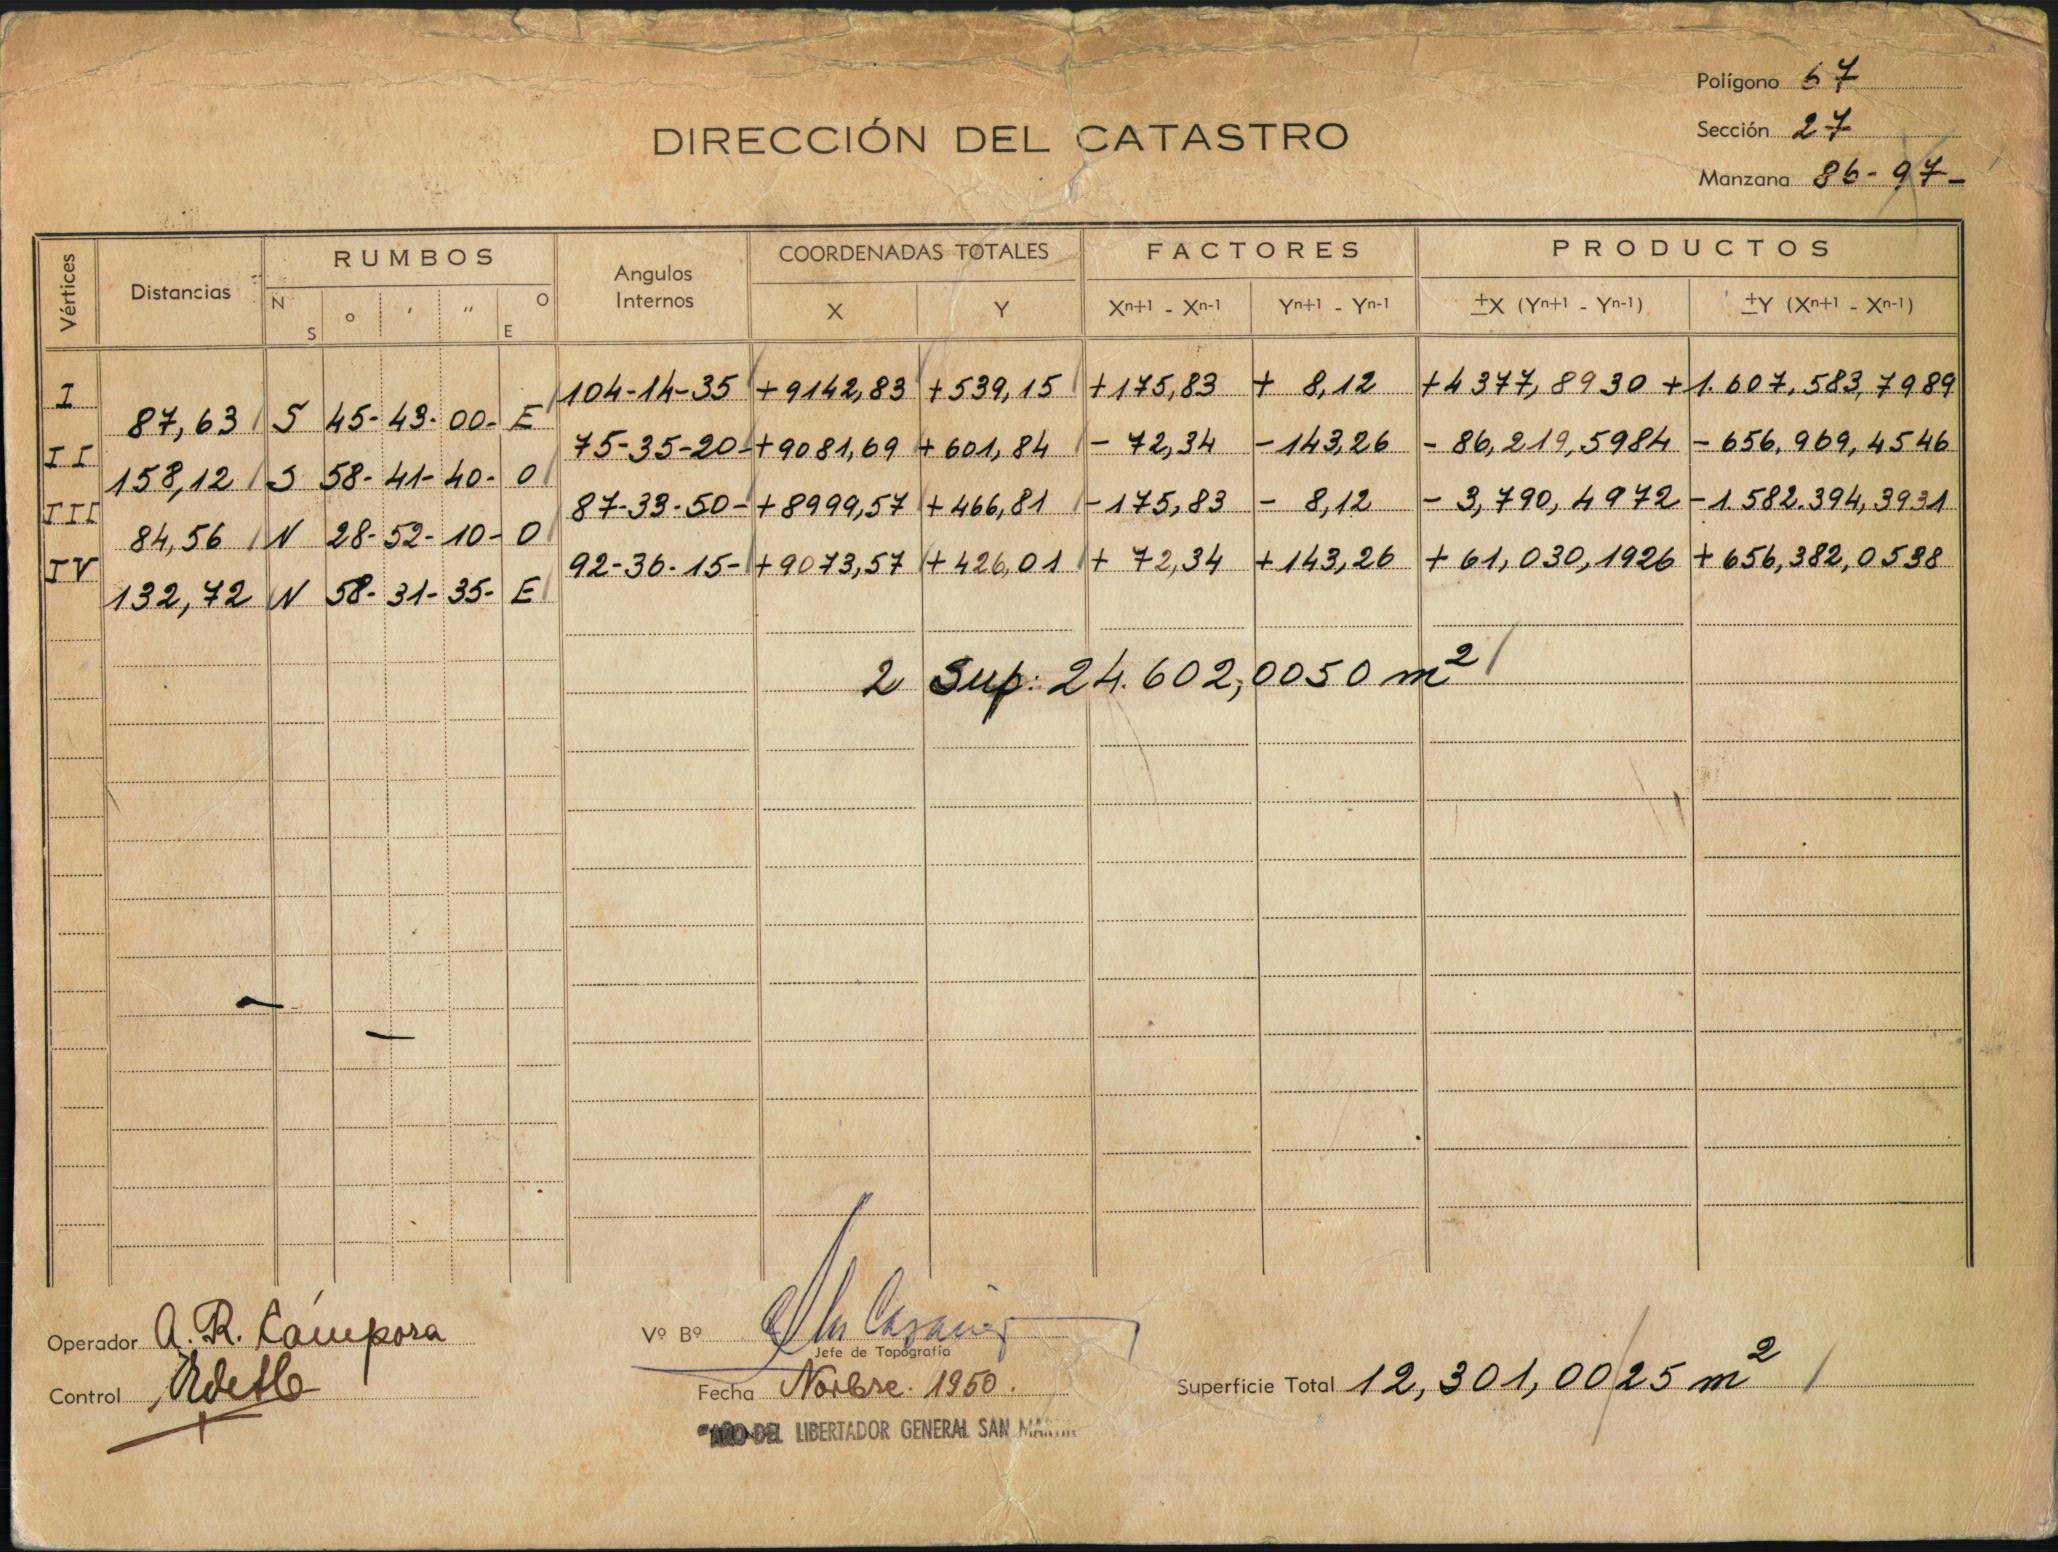 Polígono 67
DIRECCIÓN DEL CATASTRO
Sección 27
Manzana 86-97-
Vértices Distancias RUMBOS Angulos Internos COORDENADAS TOTALES FACTORES PRODUCTOS
N S ° ' " E O X Y Xn+1 - Xn-1 Yn+1 - Yn-1 ±X (Yn+1 - Yn-1) ±Y (Xn+1 - Xn-1)
I 104-14-35 +9142,83 +539,15 +175,83 + 8,12 +4377,8930 +1.607.583,7989
87,63 S 45-43-00- E
II 75-35-20- +9081,69 +601,84 - 72,34 -143,26 - 86,219,5984 - 656.969,4546
158,12 S 58-41-40- O
III 87-33-50- +8999,57 +466,81 -175,83 - 8,12 - 3,790,4972 -1.582.394,3931
84,56 N 28-52-10- O
IV 92-36-15- +9073,57 +426,01 + 72,34 +143,26 + 61,030,1926 +656,382,0538
132,72 N 58-31-35- E
2 Sup: 24.602,0050 m²
Operador A. R. Cámpora
Vº Bº
Jefe de Topografía
Control
Fecha Novbre. 1950.
Superficie Total 12,301,0025 m²
"AÑO DEL LIBERTADOR GENERAL SAN MARTIN